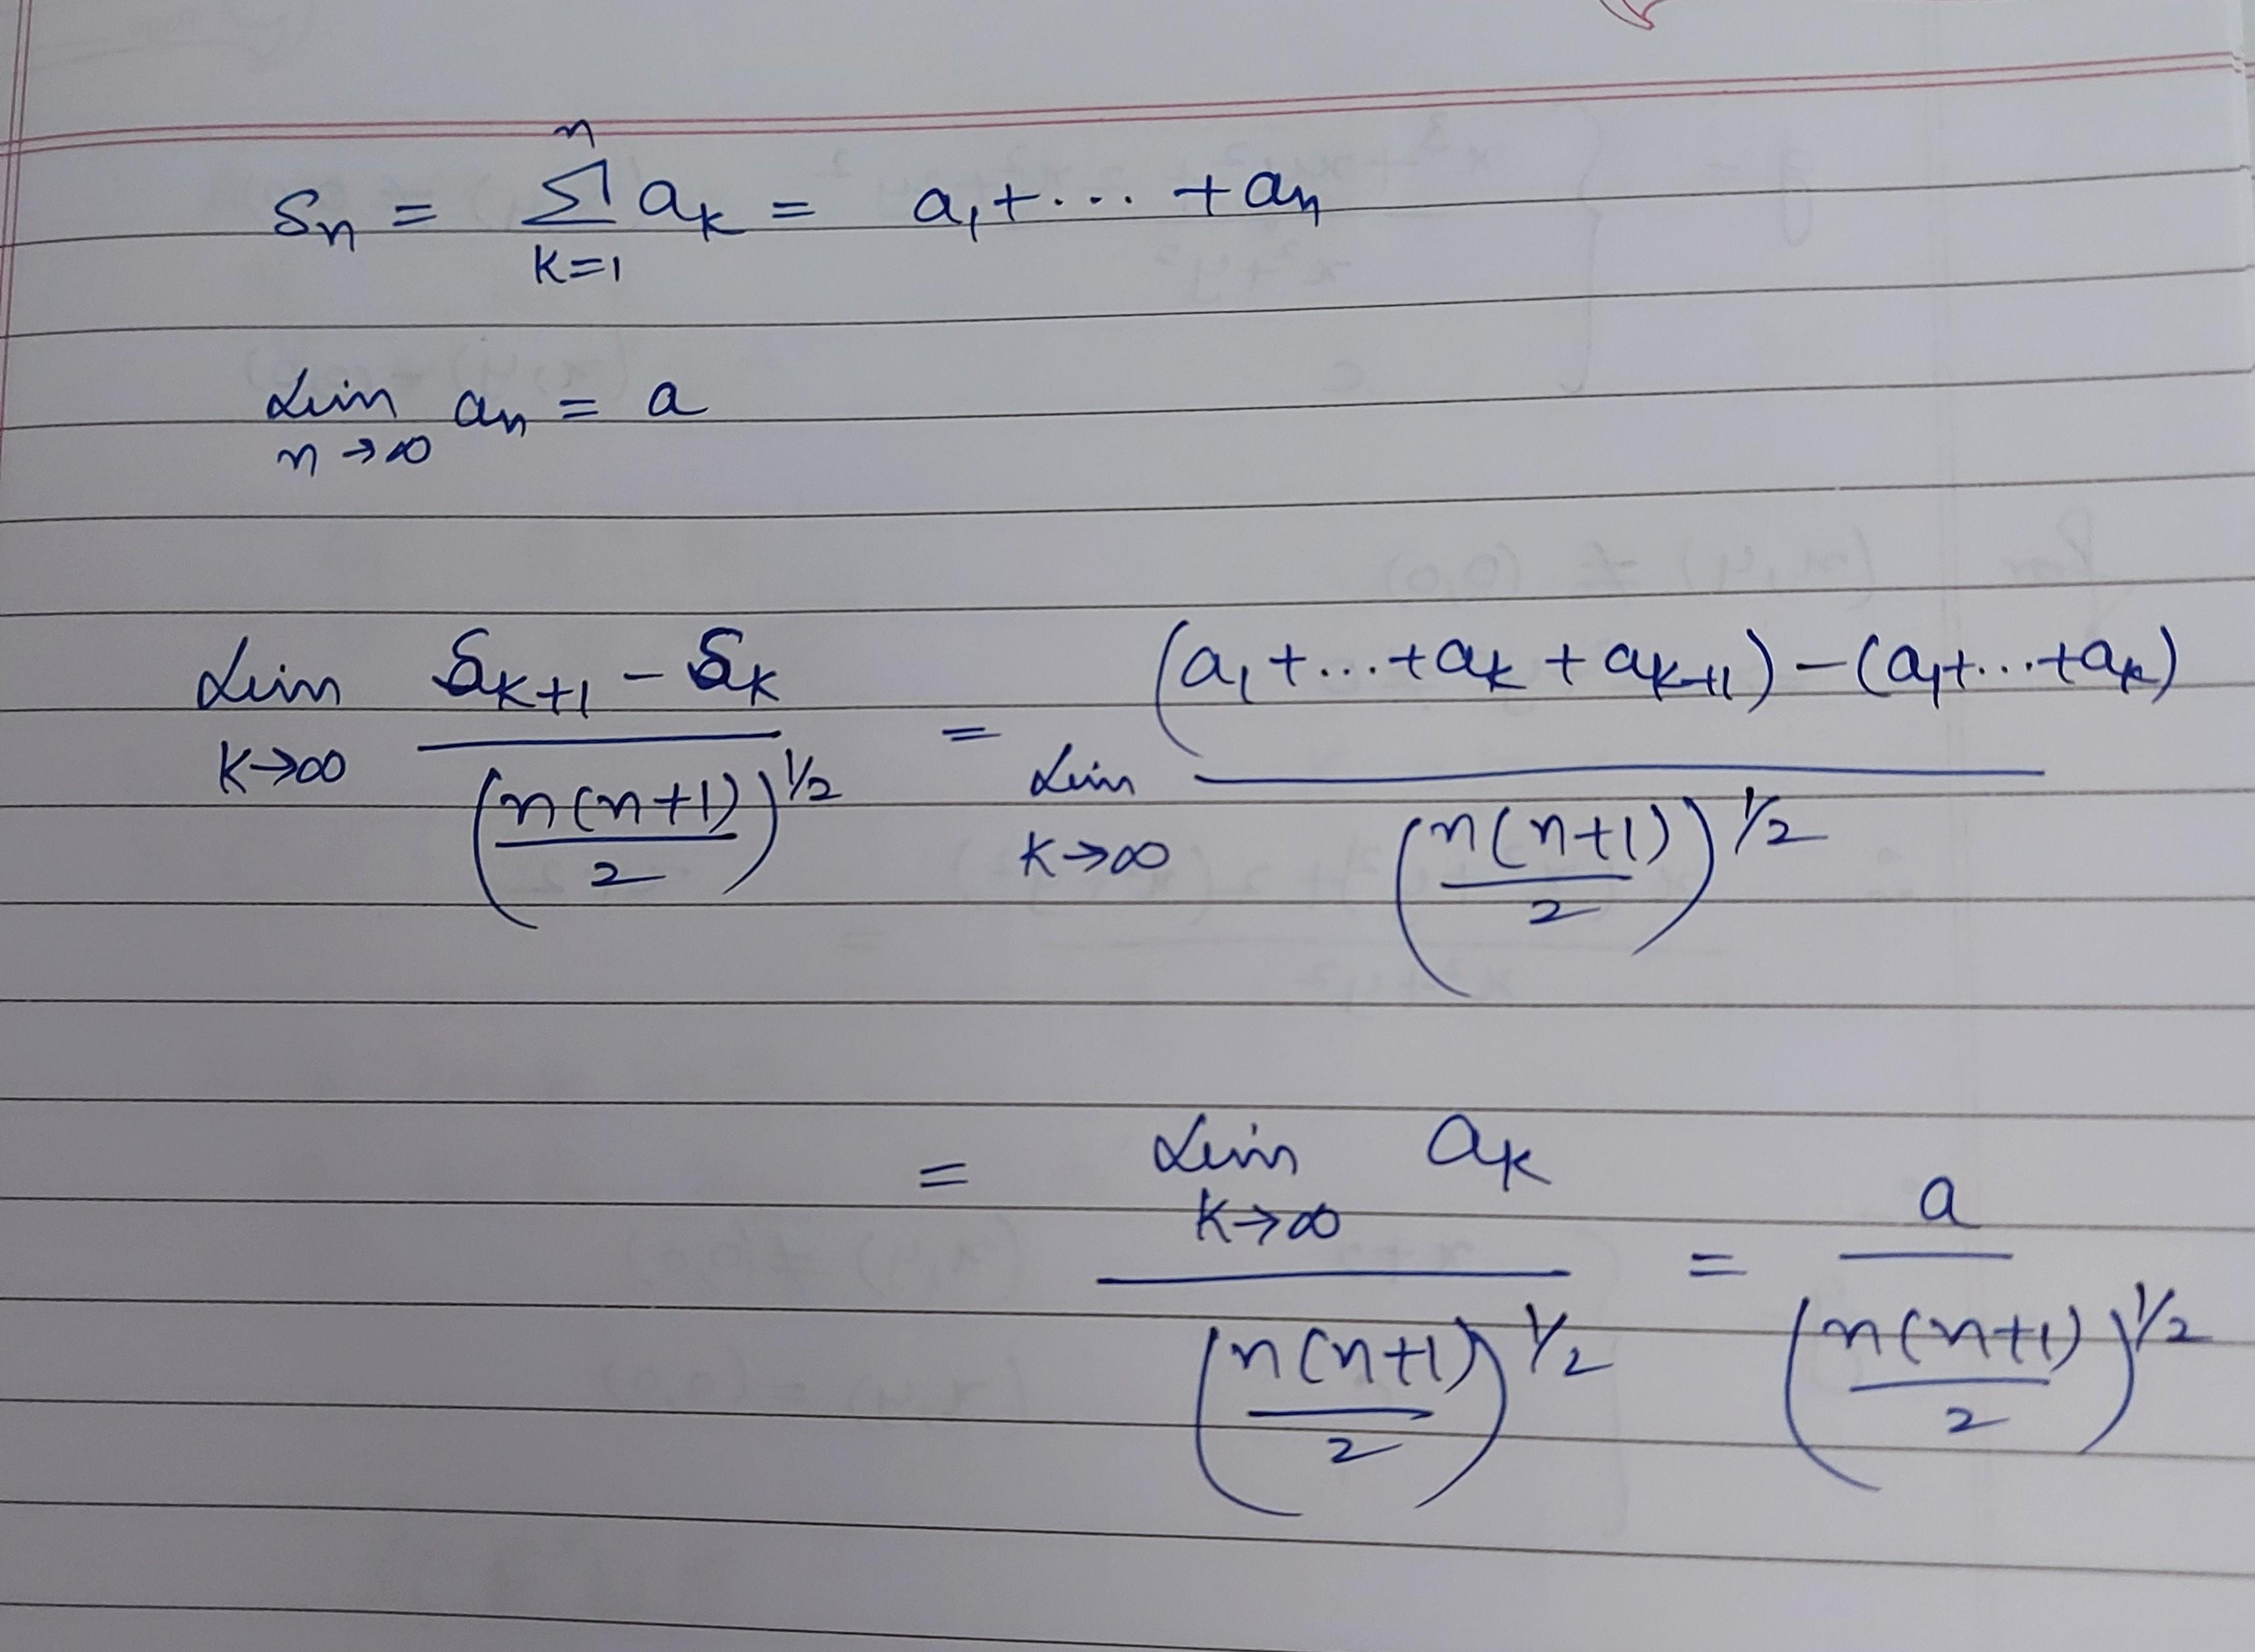 Sn = n∑k=1 ak = a1+... +an
Lim n→∞ an = a
Lim k→∞ (Sk+1 − Sk) / (n(n+1)/2)^1/2 = Lim k→∞ ((a1+...+ak + ak+1) − (a1+...+ak)) / (n(n+1)/2)^1/2
= Lim k→∞ ak / (n(n+1)/2)^1/2 = a / (n(n+1)/2)^1/2